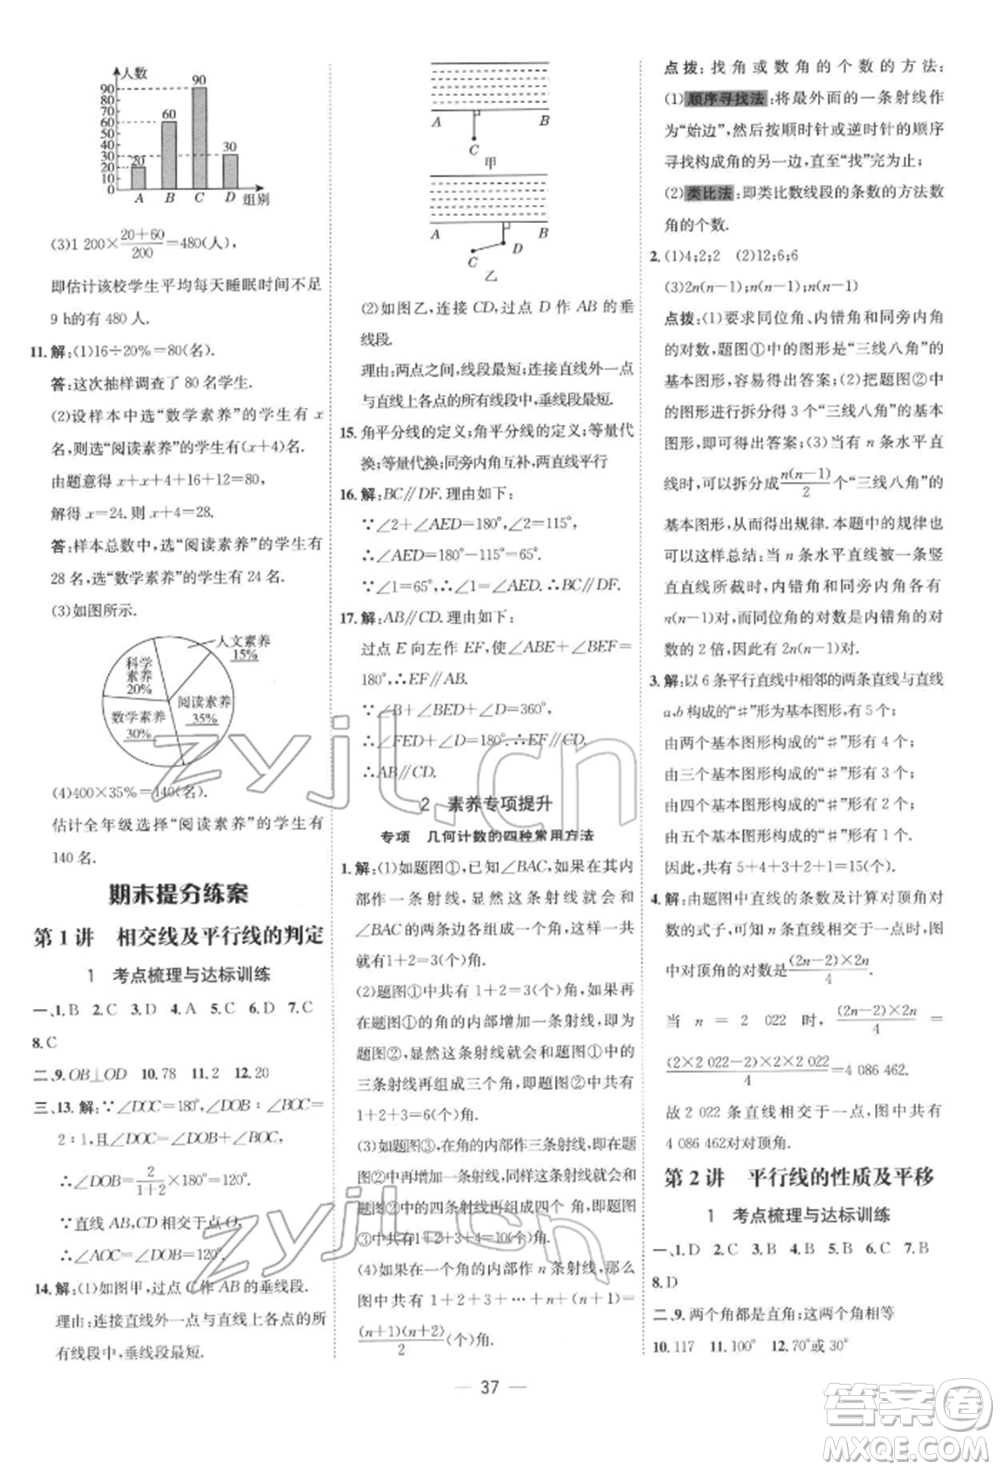 人数
90
80
70
60
50
40
30
20
10
0
20
60
90
30
A B C D 组别
(3)1 200×(20+60)/200=480(人),
即估计该校学生平均每天睡眠时间不足
9 h的有 480 人.
11. 解:(1)16÷20%=80(名).
答:这次抽样调查了 80 名学生.
(2)设样本中选“数学素养”的学生有 x
名,则选“阅读素养”的学生有(x+4)名.
由题意得 x+x+4+16+12=80,
解得 x=24. 则 x+4=28.
答:样本总数中,选“阅读素养”的学生有
28 名,选“数学素养”的学生有 24 名.
(3)如图所示.
人文素养
15%
科学
素养
20%
阅读素养
35%
数学素养
30%
(4)400×35%=140(名).
估计全年级选择“阅读素养”的学生有
140 名.
期末提分练案
第 1 讲 相交线及平行线的判定
1 考点梳理与达标训练
一、1. B 2. C 3. D 4. A 5. C 6. D 7. C
8. C
二、9. OB⊥OD 10. 78 11. 2 12. 20
三、13. 解:∵∠DOC=180°,∠DOB∶∠BOC=
2∶1,且∠DOC=∠DOB+∠BOC,
∴∠DOB=2/(1+2)×180°=120°.
∵直线 AB,CD 相交于点 O,
∴∠AOC=∠DOB=120°.
14. 解:(1)如图甲,过点 C 作 AB 的垂线段.
理由:连接直线外一点与直线上各点的所
有线段中,垂线段最短.
A B
C
甲
A B
D
C
乙
(2)如图乙,连接 CD,过点 D 作 AB 的垂
线段.
理由:两点之间,线段最短.连接直线外一点
与直线上各点的所有线段中,垂线段最短.
15. 角平分线的定义;角平分线的定义;等量代
换;等量代换;同旁内角互补,两直线平行
16. 解:BC∥DF. 理由如下:
∵∠2+∠AED=180°,∠2=115°,
∴∠AED=180°-115°=65°.
∵∠1=65°,∴∠1=∠AED. ∴BC∥DF.
17. 解:AB∥CD. 理由如下:
过点 E 向左作 EF,使∠ABE+∠BEF=
180°,∴EF∥AB.
∵∠B+∠BED+∠D=360°,
∴∠FED+∠D=180°. ∴EF∥CD.
∴AB∥CD.
2 素养专项提升
专项 几何计数的四种常用方法
1. 解:(1)如题图①,已知∠BAC,如果在其内
部作一条射线,显然这条射线就会和
∠BAC 的两边各组成一个角,这样一共就
有 1+2=3(个)角.
(2)题图①中共有 1+2=3(个)角,如果
在题图①中角的内部增加一条射线,即为
题图②,显然这条射线就会和图中的三条
射线再组成三个角,即题图②中共有
1+2+3=6(个)角.
(3)如题图③,在角的内部作三条射线,即在题
图②中再增加一条射线,同样这条射线就会和
图②中的四条射线再组成四个角,即题图③中
共有 1+2+3+4=10(个)角.
(4)如果在一个角的内部作 n 条射线,则图
中共有 1+2+3+…+n+(n+1)=
(n+1)(n+2)/2(个)角.
点拨:找角或数角的个数的方法:
(1)顺序寻找法:将最外面的一条射线作
为“始边”,然后按顺时针或逆时针的顺序
寻找构成角的另一边,直至“找”完为止;
(2)类比法:即类比数线段的条数的方法数
角的个数.
2. (1)4;2;2 (2)12;6;6
(3)2n(n-1);n(n-1);n(n-1)
点拨:(1)要求同位角、内错角和同旁内角
的对数,题图①中的图形是“三线八角”的
基本图形,易得出答案;(2)把题图②中的
图形进行拆分得到 3 个“三线八角”的基本
图形,即可得出答案;(3)当有 n 条水平直
线时,可以拆分成 n(n-1)/2 个“三线八角”的
基本图形,从而得出规律. 本题中的规律也
可以这样总结:当 n 条水平直线被一条竖
直直线所截时,内错角和同旁内角各有
n(n-1)对,而同位角的对数是内错角的对
数的 2 倍,有 2n(n-1)对.
3. 解:以 6 条平行直线中相邻的两条直线与直线
a,b 构成的“#”形为基本图形,有 5 个.
由两个基本图形构成的“#”形有 4 个.
由三个基本图形构成的“#”形有 3 个.
由四个基本图形构成的“#”形有 2 个.
由五个基本图形构成的“#”形有 1 个.
因此,共有 5+4+3+2+1=15(个).
4. 解:由题图中直线的条数及计算对顶角对
数的式子,可知当 n 条直线相交于一点时,图
中对顶角的对数是(2n-2)×2n/4.
当 n = 2 022 时,(2n-2)×2n/4 =
(2×2 022-2)×2×2 022/4=4 086 462.
故 2 022 条直线相交于一点,可形成
4 086 462对对顶角.
第 2 讲 平行线的性质及平移
1 考点梳理与达标训练
一、1. D 2. C 3. C 4. B 5. D 6. C 7. B
8. D
二、9. 两个角都是直角;这两个角相等
10. 117 11. 100° 12. 70°或 30°
— 37 —
zyjl.cn
zyjl.cn
答案圈
MXQE.COM